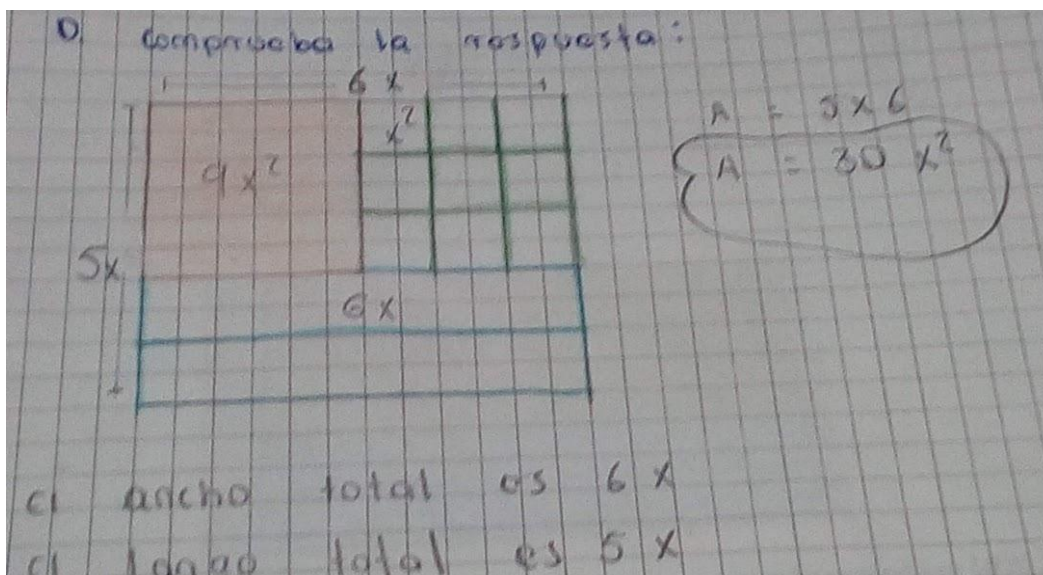 D) comprueba la respuesta:
6 x
x²
9x²
5x
6 x
A = 5 x 6
A = 30 x²
el ancho total es 6 x
el largo total es 5 x